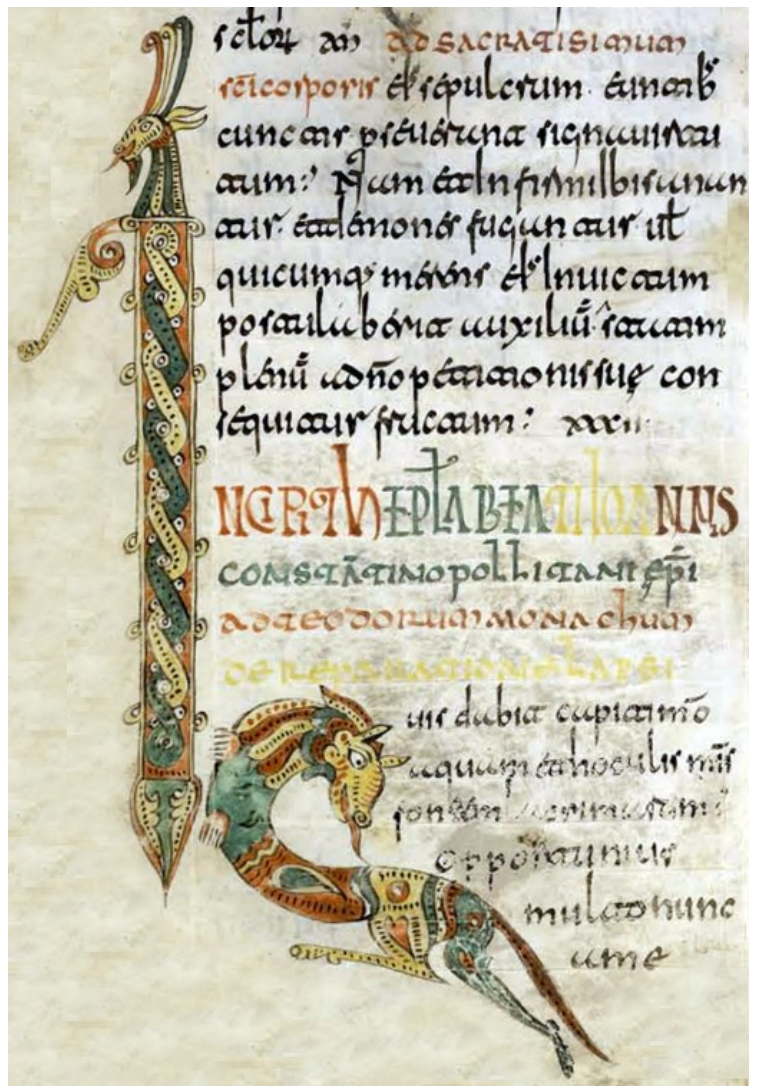 sc̄lorꝝ am ad sacratisimum
sc̄i corporis eius sepulcrum. euntib;
cunctis pseuerant signa uirtu
tum: Nam et infirmi ibi sanan
tur. et demones fugantur. ut
quicumq; merens eius inuictum
postulaberit auxiliū. statim
plenū a dño petitionis suę con
sequitur fructum: xxxii
INCIPIT EPLA BEATI IOANNIS
CONSTĀTINOPOLLITANI EP̄I
AD TEODORUM MONACHUM
DE REPARATIONE LAPSI
Quis dabit capiti mō
aquam et hoculis mīs
fontem lacrimarum:
opportunius
multo nunc
a me